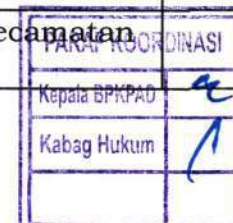 ecamatan
PARAF KOORDINASI
Kepala BPKPAD
Kabag Hukum